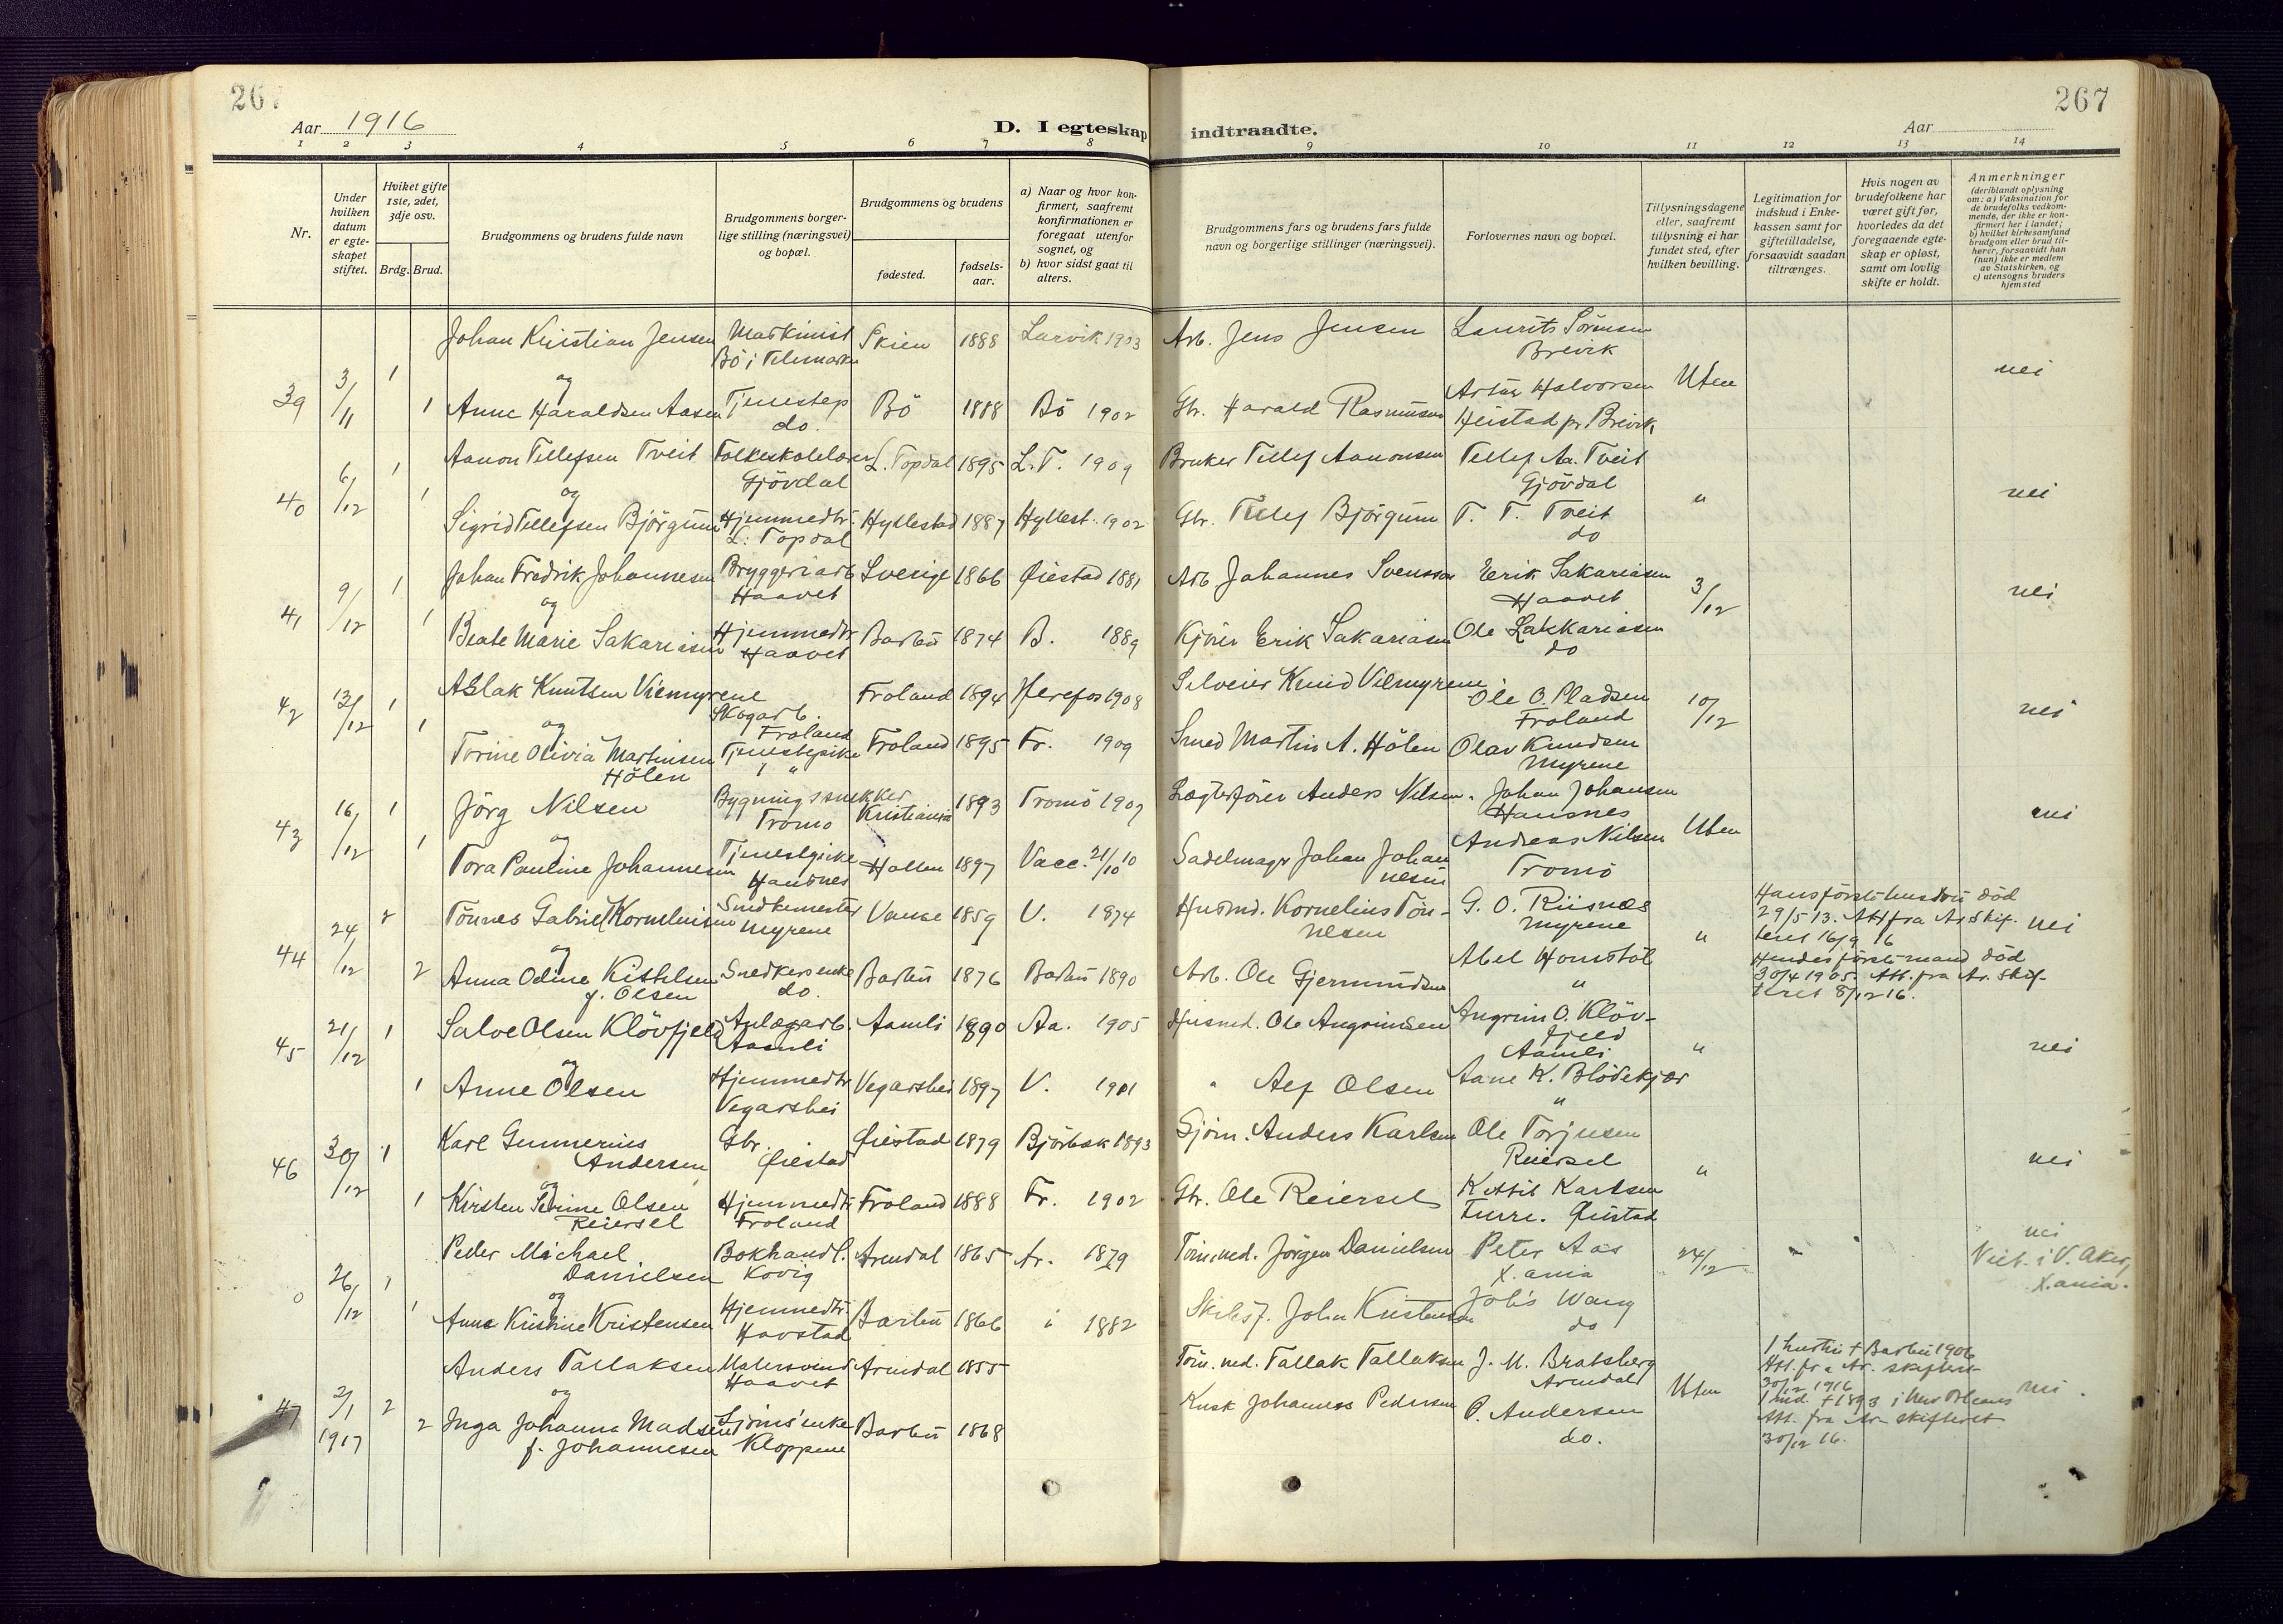 267
Aar 1916
D. I egteskap indtraadte.
Aar
267
1 2 3 4 5 6 7 8 9 10 11 12 13 14
Nr.
Under hvilken datum er egte-skapet stiftet.
Hviket gifte 1ste, 2det, 3dje osv.
Brdg. Brud.
Brudgommens og brudens fulde navn
Brudgommens borger-lige stilling (næringsvei) og bopæl.
Brudgommens og brudens
fødested.
fødsels-aar.
a) Naar og hvor kon-firmert, saafremt konfirmationen er foregaat utenfor sognet, og
b) hvor sidst gaat til alters.
Brudgommens fars og brudens fars fulde navn og borgerlige stillinger (næringsvei).
Forlovernes navn og bopæl.
Tillysningsdagene eller, saafremt tillysning ei har fundet sted, efter hvilken bevilling.
Legitimation for indskud i Enke-kassen samt for giftetilladelse, forsaavidt saadan tiltrænges.
Hvis nogen av brudefolkene har været gift før, hvorledes da det foregaaende egte-skap er opløst, samt om lovlig skifte er holdt.
Anmerkninger
(deriblandt oplysning om: a) Vaksination for de brudefolks vedkom-mende, der ikke er kon-firmert her i landet; b) hvilket kirkesamfund brudgom eller brud til-hører, forsaavidt han (hun) ikke er medlem av Statskirken, og c) utensogns bruders hjemsted
39 3/11 1 Johan Kristian Jensen Maskinist Bö i Telemarken Skien 1888 Larvik 1903 Arb. Jens Jensen Laurits Sörensen Brevik Uten nei
og
1 Anne Haraldsen Aasen Tjenestep do. Bö 1888 Bö 1902 Gbr. Harald Rasmusen Artur Halvorsen Heistad pr Brevik
40 6/12 1 Aanon Tellefsen Tveit Folkeskolelærer Gjövdal L. Topdal 1895 L. T. 1909 Bruker Tellef Aanonsen Tellef Aa. Tveit Gjövdal " nei
og
1 Sigrid Tellefsen Björgum Hjemmedtr. L. Topdal Hyllestad 1887 Hyllest. 1902 Gbr. Tellef Björgum T. T. Tveit do
41 9/12 1 Johan Fredrik Johannesen Bryggeriarb Haavet Sverige 1866 Öiestad 1881 Arb Johannes Svensson Erik Sakariasen Haavet 3/12 nei
og
1 Beate Marie Sakariasen Hjemmedtr Haavet Barbu 1874 B. 1889 Kjörer Erik Sakariasen Ole Zakkariasen do
42 13/12 1 Aslak Knutsen Viemyrene Skogarb. Froland Froland 1894 Herefos 1908 Selveier Knud Viemyrene Ole O. Pladsen Froland 10/12 nei
og
1 Torine Olivia Martinsen Hölen Tjenestepike " Froland 1895 Fr. 1909 Smed Martin A. Hölen Olav Knudsen Myrene
43 16/12 1 Jörg Nilsen Bygningssnekker Tromö Kristiania 1893 Tromö 1907 Lægterförer Anders Nilsen. Johan Johansen Hausnes Uten nei
og
1 Tora Pauline Johannesen Tjenestpike Hausnes Holten 1897 Vacc. 21/10 10 Sadelmager Johan Johannesen Andreas Nilsen Tromö
44 24/12 2 Tönnes Gabriel Korneliusen Snedkemester Myrene Vanse 1859 V. 1874 Husmd. Kornelius Tön-nesen G. O. Riisnæs Myrene " Hans förste hustru död 29/5 13. Att fra Ar skif-teret 16/9 16 nei
og
2 Anna Odine Kittelsen f. Olsen Snedkersenke do. Barbu 1876 Barbu 1890 Arb. Ole Gjermundsen Abel Homstöl " Hendes förste mand död 30/4 1905. Att. fra Ar. skif-teret 8/12 16.
45 21/12 1 Salve Olsen Klövfjeld Anlægsarb. Aamli Aamli 1890 Aa. 1905 Husmd. Ole Angrimsen Angrim O. Klöv-fjeld Aamli " nei
og
1 Anne Olsen Hjemmedtr Vegarshei Vegarshei 1897 V. 1911 " Alf Olsen Aane K. Blödekjær "
46 30/12 1 Karl Gunnerius Andersen Gbr. Öiestad Öiestad 1879 Björbæk 1893 Sjöm. Anders Karlsen Ole Torjusen Reiersel " nei
og
1 Kirsten Serine Olsen Reiersel Hjemmedtr Froland Froland 1888 Fr. 1902 Gbr. Ole Reiersel Kittil Karlsen Furre. Öiestad
0 26/12 1 Peder Michael Danielsen Bokhandl. Kovig Arendal 1865 Ar. 1879 Tömmed. Jörgen Danielsen Peter Aas X.ania 24/12 " " nei Viet. i V. Aker, X.ania.
og
1 Anna Kristine Kristensen Hjemmedtr. Havstad Barbu 1866 i 1882 Skibsf. John Kristensen Johs Wang do
47 2/1 1917 2 Anders Tallaksen Malersvend Haavet Arendal 1855 Töm.med. Tallak Tallaksen J. M. Bratsberg Arendal Uten 1 hustru † Barbu 1906 Att. fra Ar. skifteret 30/12 1916 nei.
og
2 Inga Johanna Madsen f. Johannesen Sjöms'enke Kloppene Barbu 1868 Kusk Johannes Pedersen P. Andersen do. 1 md. † 1893 i New Orleans Att. fra Ar skifteret 30/12 16.